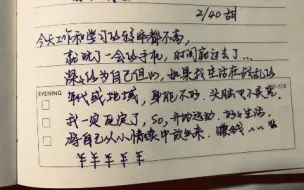 2/40 甜
今天工作和学习的效率都不高,
就玩了一会的手机,时间就过去了...
深深的为自己担心,如果我生活在战乱的
EVENING
年代或地域,身体不好,头脑也不灵,
我一定死定了,so,开始运动,好好生活,
将自己从小情绪中放出来,赚钱...
¥ ¥ ¥ ¥ ¥